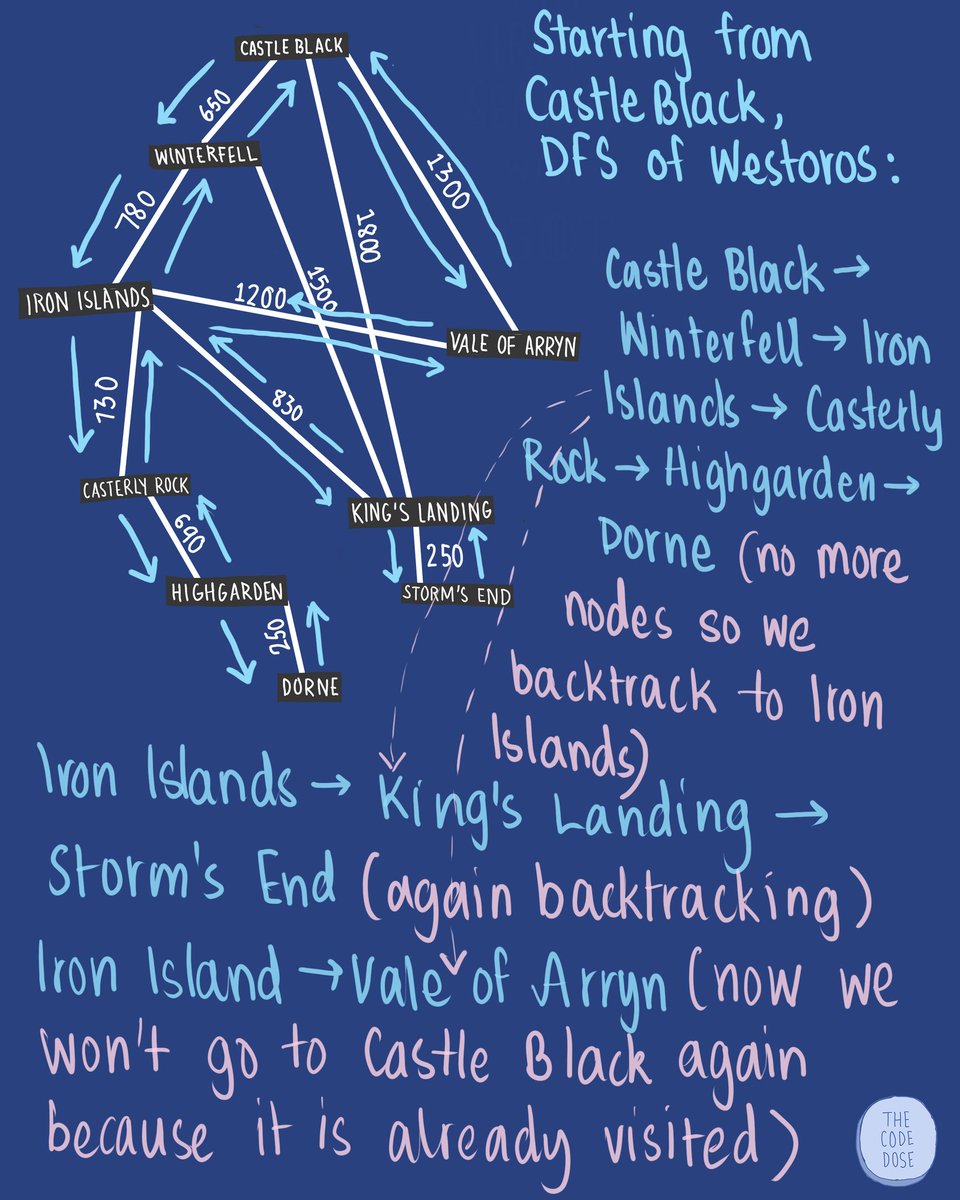 CASTLE BLACK
650
WINTERFELL
780
1300
1800
1500
IRON ISLANDS
1200
VALE OF ARRYN
730
830
CASTERLY ROCK
KING'S LANDING
690
250
HIGHGARDEN
STORM'S END
250
DORNE
Starting from
Castle Black,
DFS of Westoros:
Castle Black →
Winterfell → Iron
Islands → Casterly
Rock → Highgarden →
Dorne (no more
nodes so we
backtrack to Iron
Islands)
Iron Islands → King's Landing →
Storm's End (again backtracking)
Iron Island → Vale of Arryn (now we
won't go to Castle Black again
because it is already visited)
THE
CODE
DOSE